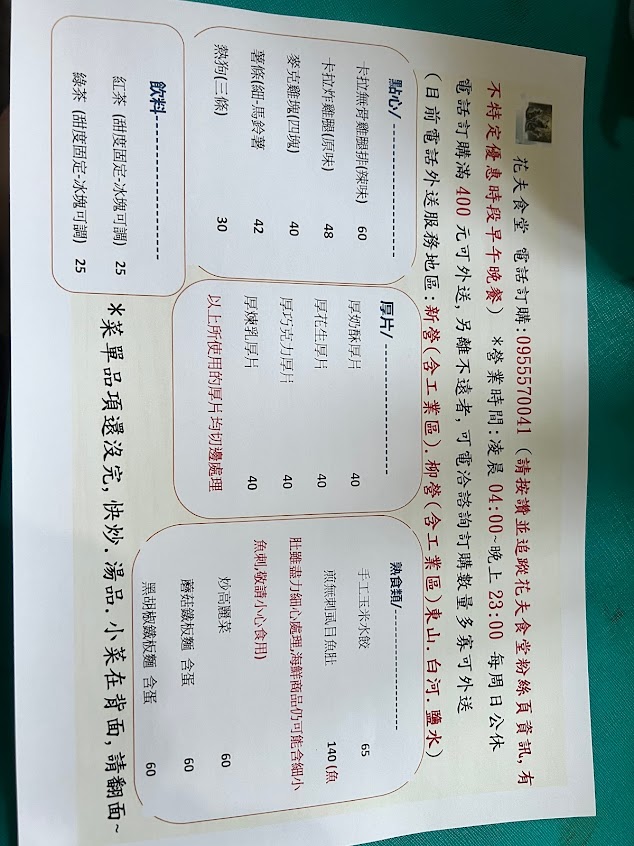 花夫食堂 電話訂購:0955570041 (請按讚並追蹤花夫食堂粉絲頁資訊,有
不特定優惠時段早午晚餐) *營業時間:凌晨 04:00~晚上 23:00 每周日公休
電話訂購滿 400 元可外送,另離不遠者,可電洽諮詢訂購數量多寡可外送
(目前電話外送服務地區:新營(含工業區).柳營(含工業區)東山.白河.鹽水)
點心/-------------------
卡拉無骨雞腿排(辣味) 60
卡拉炸雞腿(原味) 48
麥克雞塊(四塊) 40
薯條(細-馬鈴薯 42
熱狗(三條) 30
飲料-------------------
紅茶 (甜度固定-冰塊可調) 25
綠茶 (甜度固定-冰塊可調) 25
厚片/-------------------
厚奶酥厚片 40
厚花生厚片 40
厚巧克力厚片 40
厚煉乳厚片 40
以上所使用的厚片均切邊處理
熟食類/-------------------
手工玉米水餃 65
煎無刺虱目魚肚 140 (魚
肚雖盡力細心處理,海鮮商品仍可能含細小
魚刺,敬請小心食用)
炒高麗菜 60
蘑菇鐵板麵 含蛋 60
黑胡椒鐵板麵 含蛋 60
*菜單品項還沒完,快炒.湯品.小菜在背面,請翻面~